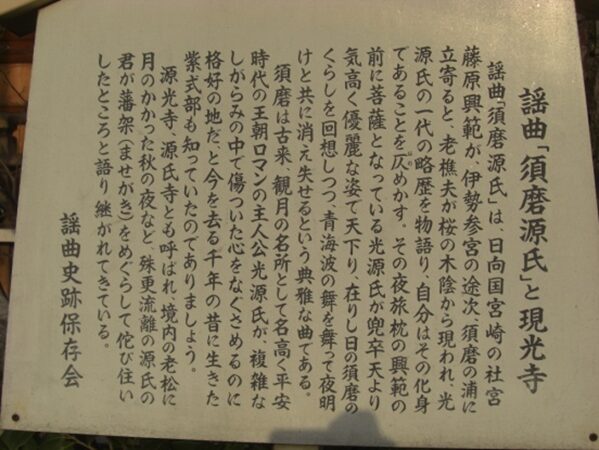 謡曲「須磨源氏」と現光寺
謡曲「須磨源氏」は、日向国宮崎の社宮
藤原興範が、伊勢参宮の途次、須磨の浦に
立寄ると、老樵夫が桜の木陰から現われ、光
源氏の一代の略歴を物語り、自分はその化身
であることを仄めかす。その夜旅枕の興範の
前に菩薩となっている光源氏が兜卒天より
気高く優麗な姿で天下り、在りし日の須磨の
くらしを回想しつつ、青海波の舞を舞って夜明
けと共に消え失せるという典雅な曲である。
須磨は古来、観月の名所として名高く平安
時代の王朝ロマンの主人公光源氏が、複雑な
しがらみの中で傷ついた心をなぐさめるのに
格好の地だ、と今を去る千年の昔に生きた
紫式部も知っていたのでありましょう。
源光寺、源氏寺とも呼ばれ、境内の老松に
月のかかった秋の夜など、殊更流離の源氏の
君が藩架(ませがき)をめぐらして侘び住い
したところと語り継がれてきている。
謡曲史跡保存会